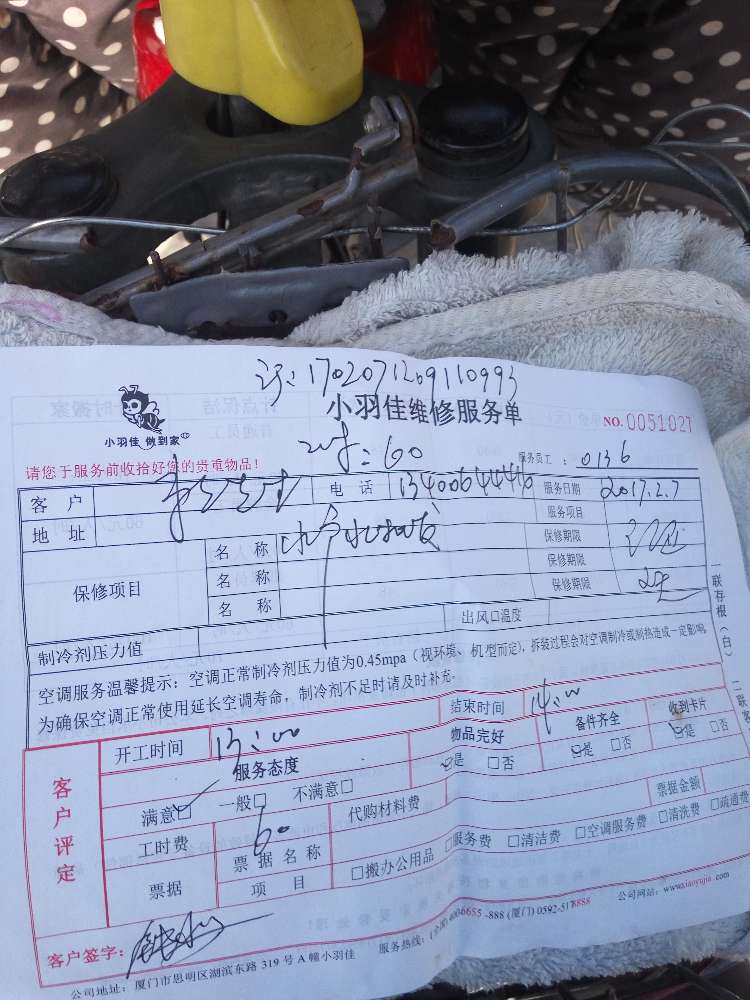 170207126911099
小羽佳维修服务单
NO.0051027
小羽佳 做到家
请您于服务前收拾好您的贵重物品！
:60
服务员工：0136
客户
电话 13400644416
服务日期 2017.2.7
地址
服务项目
保修项目
名称
保修期限
名称
保修期限
名称
保修期限
制冷剂压力值
出风口温度
空调服务温馨提示：空调正常制冷剂压力值为0.45mpa（视环境、机型而定），拆装过程会对空调制冷或制热造成一定影响，
为确保空调正常使用延长空调寿命，制冷剂不足时请及时补充.
一联存根（白）
二联客
客户评定
开工时间 13:00
结束时间 14:00
服务态度
物品完好
备件齐全
收到卡片
满意□ 一般□ 不满意□
□是 □否
□是 □否
□是 □否
工时费 60
代购材料费
票据
票据名称
票据金额
项目
□搬办公用品 □服务费 □清洁费 □空调服务费 □清洗费 □疏通费
客户签字：
公司地址：厦门市思明区湖滨东路 319 号 A 幢小羽佳
公司网站：www.xiaoyujia.com